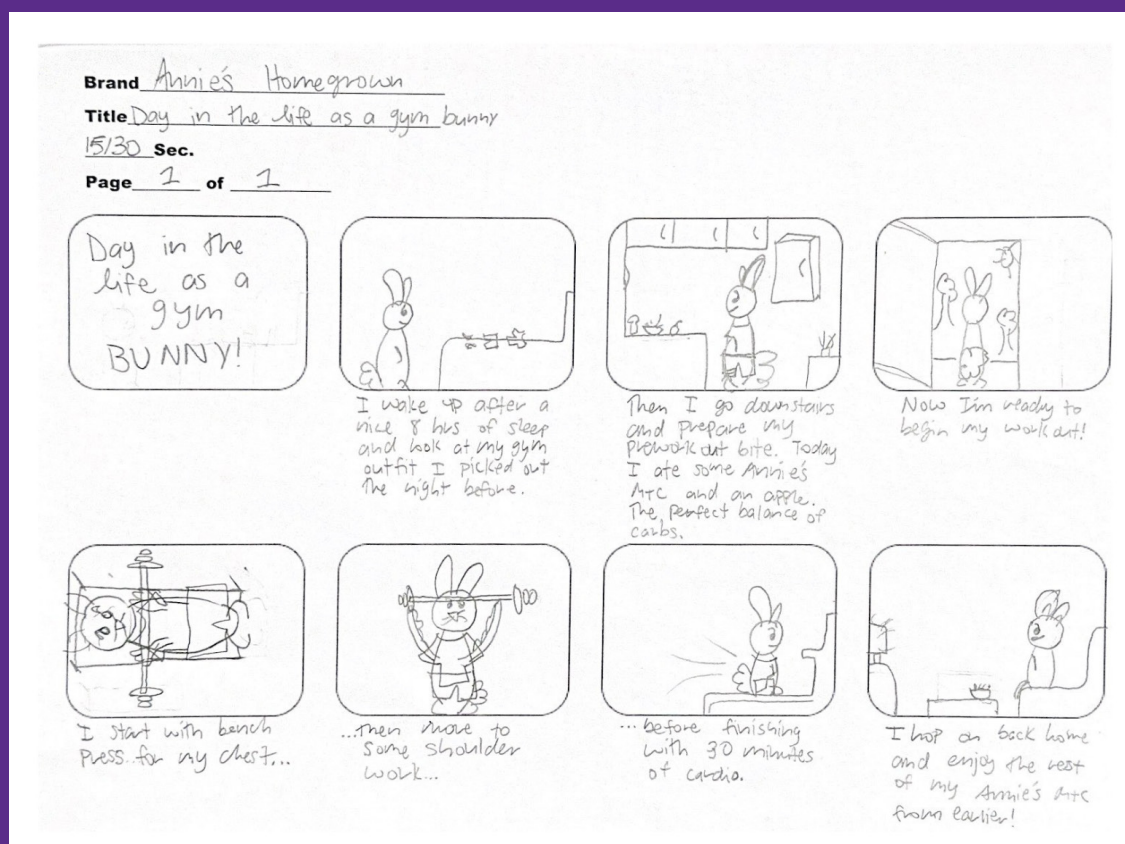 Brand Annie's Homegrown
Title Day in the life as a gym bunny
15/30 Sec.
Page 1 of 1
Day in the
life as a
gym
BUNNY!
I wake up after a
nice 8 hrs of sleep
and look at my gym
outfit I picked out
the night before.
Then I go downstairs
and prepare my
preworkout bite. Today
I ate some Annie's
M+C and an apple.
The perfect balance of
carbs.
Now I'm ready to
begin my workout!
I start with bench
press for my chest...
...then move to
some shoulder
work...
...before finishing
with 30 minutes
of cardio.
I hop on back home
and enjoy the rest
of my Annie's M+C
from earlier!